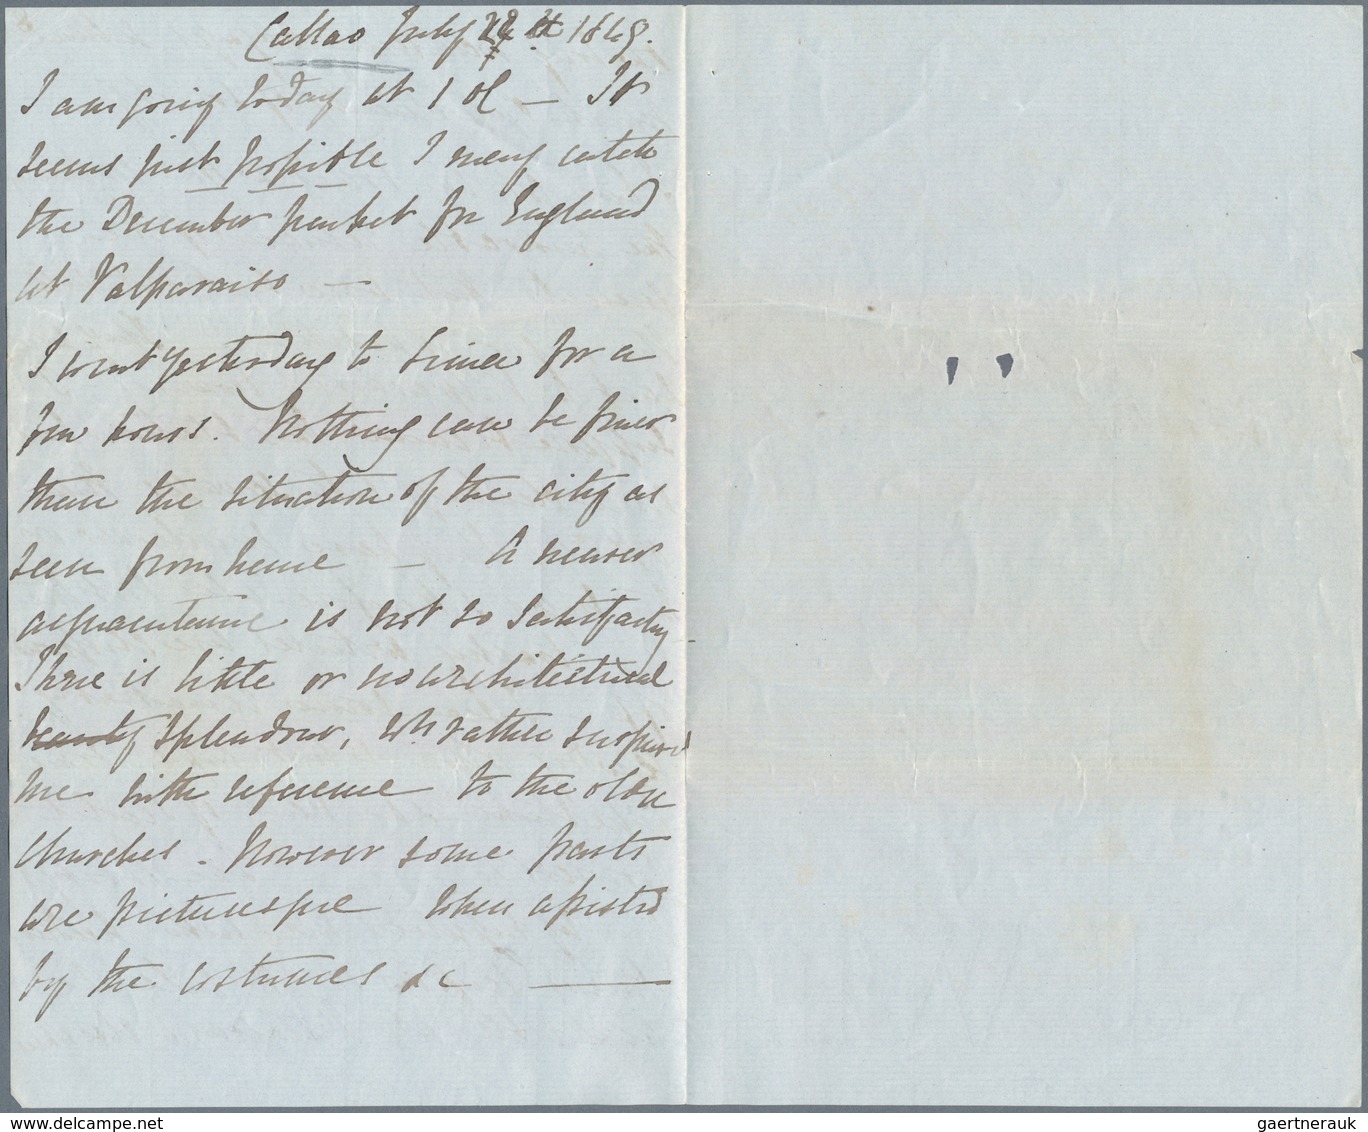 Callao July 1849.
I am going today at 1 oC — It
seems just possible I may catch
the December packet for England
at Valparaiso —
I went yesterday to Lima for a
few hours. Nothing can be finer
than the situation of the city as
seen from hence — A nearer
acquaintance is not so satisfactory
There is little or no architectural
beauty splendour, wh. rather surprised
me with reference to the older
churches. However some parts
are picturesque when assisted
by the costumes &c ——
gaertnerauk